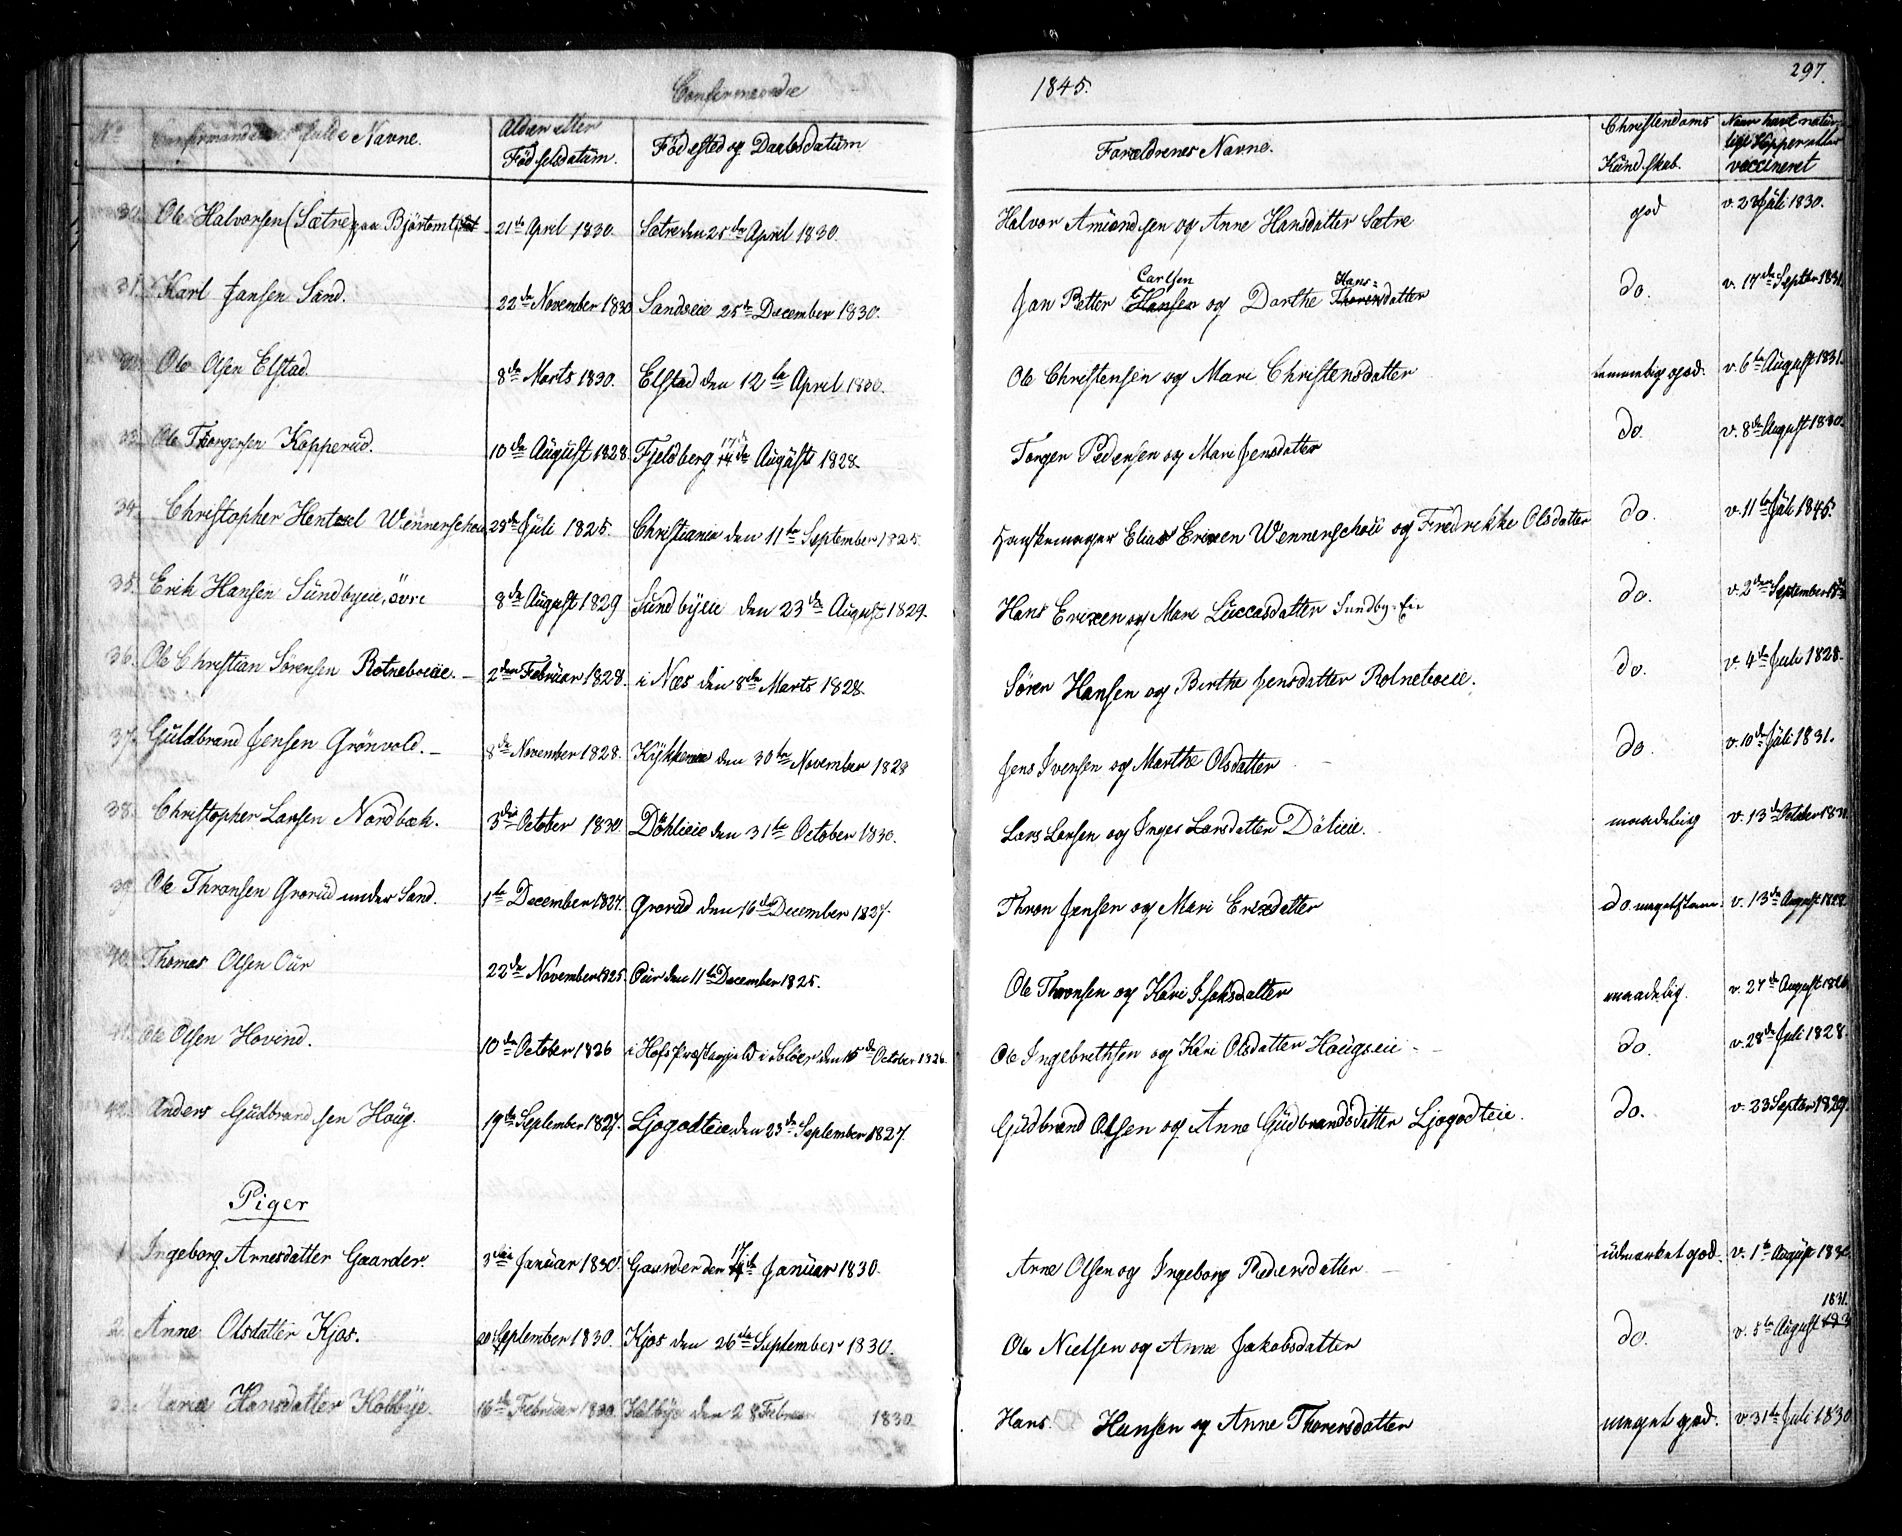 Confirmerede
1845.
297.
No Confirmandernes fulde Navne. Alder efter Fødselsdatum. Fødested og Daabsdatum Forældrenes Navne. Christendoms Kundskab. Naar havt naturlige Kopper eller vaccineret
30. Ole Halvorsen (Sætre) paa Bjørtomt 21de April 1830 Sætre den 25de April 1830. Halvor Amundsen og Anne Hansdatter Sætre god v. 2 Juli 1830.
31. Karl Jansen Sand. 22de November 1830 Sandseie 25de December 1830. Jan Petter Hansen Carlsen og Dorthe Thorensdatter Hans= do. v. 17de Septbr 1831.
32. Ole Olsen Elstad. 8de Marts 1830. Elstad den 12te April 1830. Ole Christensen og Mari Christensdatter temmelig god. v. 6te August 1831.
33. Ole Thorgersen Kopperud. 10de August 1828. Fjeldberg 17de August 1828. Torgen Pedersen og Mari Jensdatter do. v. 8de August 1830.
34. Christopher Hentzel Wennerschou 23de Juli 1825. Christiania den 11te September 1825. Hanskemager Elias Erixen Wennerschou og Fredrekke Olsdatter do. v. 11te Juli 1845.
35. Erik Hansen Sundbyeie, övre 8de August 1829 Sundbyeie den 23de August 1829. Hans Erixen og Mari Luccasdatter Sundby-Eie do. v. 2den September
36. Ole Christian Sörensen Rotneboeie. 2den Februar 1828. i Næs den 8de Marts 1828. Sören Hansen og Birthe Jensdatter Rotneboeie. do. v. 4de Juli 1828.
37. Guldbrand Jensen Grönvold. 8de November 1828. Kykkeneie den 30te November 1828 Jens Ivensen og Marthe Olsdatter do. v. 10de Juli 1831.
38. Christopher Larsen Nordbæk. 3die October 1830. Döhlieie den 31te October 1830. Lars Larsen og Inger Larsdatter Dölieie. maadelig v. 13de October 1831
39. Ole Thronsen Grorud under Sand. 1te December 1827. Grorud den 16de December 1827. Thron Jensen og Mari Erixdatter do. v. 13de August 1828.
40. Thomas Olsen Our 22de November 1825. Our den 11te December 1825. Ole Thronsen og Kari Isaksdatter maadelig. v. 27de August 1826
41. Ole Olsen Hovind. 10de October 1826 i Hofs Præstegjeld i Soløer den 15de October 1826. Ole Ingebrethsen og Kari Olsdatter Hougseie do. v. 28de Juli 1828.
42. Anders Gudbrandsen Houg. 19de September 1827. Ljogodteie den 23de September 1827. Gudbrand Olsen og Anne Gudbrandsdatter Ljogodteie. do. v. 23 Septbr 1829.
Piger
1. Ingeborg Arnesdatter Gaarder. 3die Januar 1830. Gaarder den 17de Januar 1830. Arne Olsen og Ingeborg Pedersdatter udmærket god. v. 1te August 1830.
2. Anne Olsdatter Kjos. 20 September 1830. Kjos den 26de September 1830. Ole Nielsen og Anne Jakobsdatter do. v. 5te August 1831.
3. Maria Hansdatter Kolbye. 16de Februar 1830. Kolbye den 28 Februar 1830 Hans Hansen og Anne Thorensdatter meget god. v. 31te Juli 1830